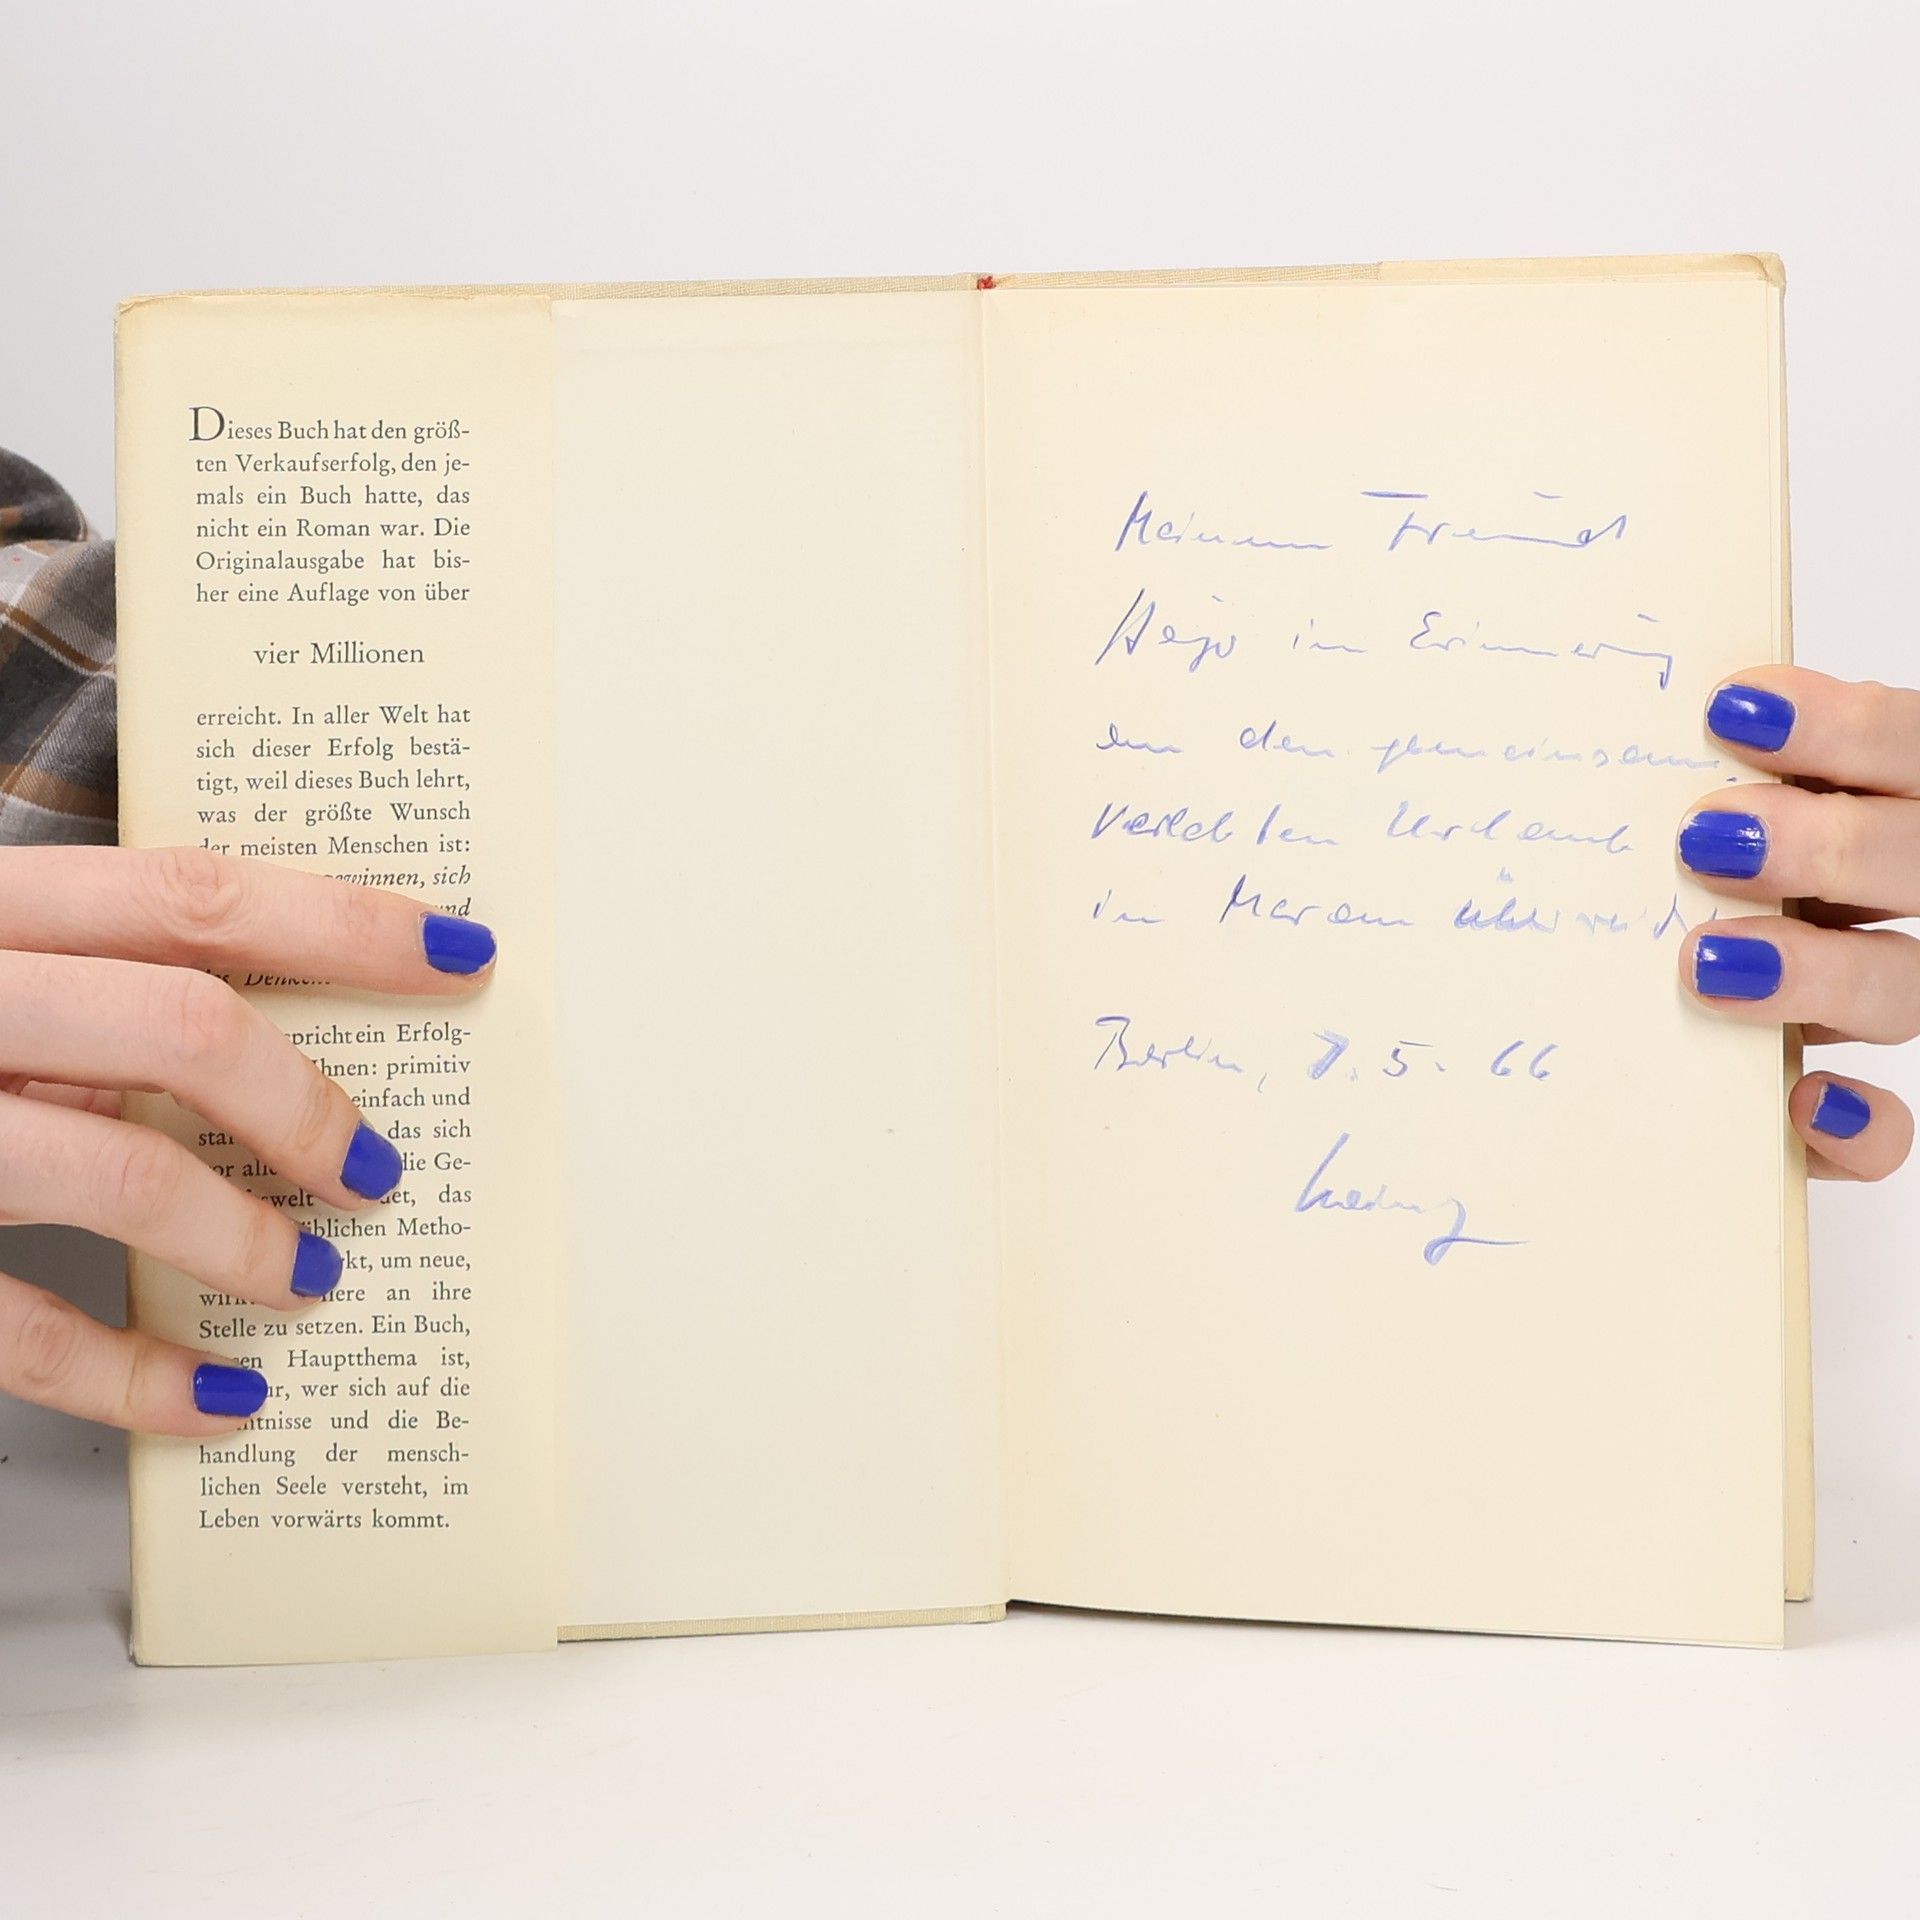 Dieses Buch hat den größ-
ten Verkaufserfolg, den je-
mals ein Buch hatte, das
nicht ein Roman war. Die
Originalausgabe hat bis-
her eine Auflage von über
vier Millionen
erreicht. In aller Welt hat
sich dieser Erfolg bestä-
tigt, weil dieses Buch lehrt,
was der größte Wunsch
der meisten Menschen ist:
gewinnen, sich
und
des Denkens
spricht ein Erfolg-
Ihnen: primitiv
einfach und
das sich
vor die Ge-
das
üblichen Metho-
um neue,
an ihre
Stelle zu setzen. Ein Buch,
Hauptthema ist,
wer sich auf die
und die Be-
handlung der mensch-
lichen Seele versteht, im
Leben vorwärts kommt.
Meinem Freund
Hajo in Erinnerung
an den gemeinsam
verlebten Urlaub
in Meran überreicht
Berlin, 7.5.66